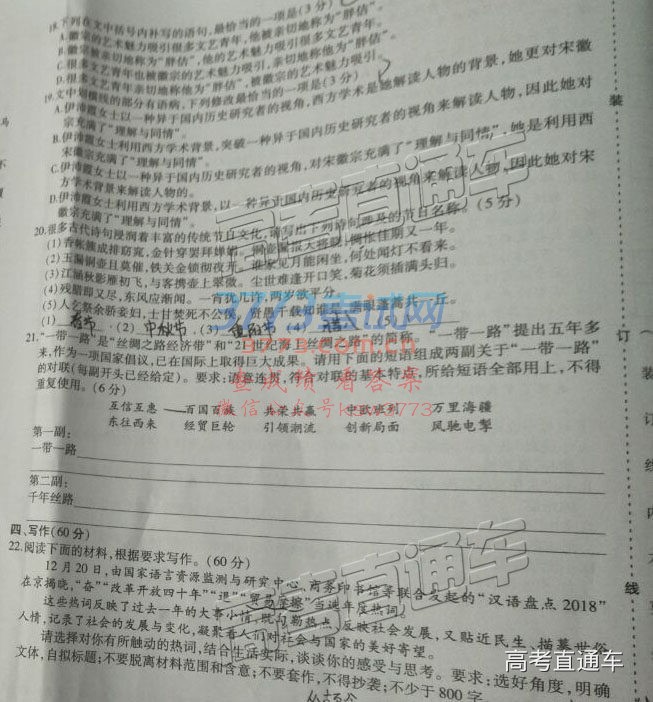 18.下列在文中括号内补写的语句,最恰当的一项是(3分)
A.徽宗的艺术魅力吸引很多文艺青年,他被亲切地称为“胖佶”。
B.徽宗被亲切地称为“胖佶”,他的艺术魅力吸引很多文艺青年。
C.很多文艺青年也被徽宗的艺术魅力吸引,亲切地称他为“胖佶”。
D.很多文艺青年亲切地称他为“胖佶”,被徽宗的艺术魅力吸引。
19.文中划横线的部分有语病,下列修改最恰当的一项是(3分)
A.伊沛霞女士以一种异于国内历史研究者的视角,西方学术是她解读人物的背景,她更对宋徽
宗充满了“理解与同情”。
B.伊沛霞女士利用西方学术背景,突破一种异于国内历史研究者的视角来解读人物,因此她对
宋徽宗充满了“理解与同情”。
C.伊沛霞女士以一种异于国内历史研究者的视角,对宋徽宗充满了“理解与同情”,她是利用西
方学术背景来解读人物的。
D.伊沛霞女士利用西方学术背景,以一种异于国内历史研究者的视角来解读人物,因此她对宋
徽宗充满了“理解与同情”。
20.很多古代诗句浸润着丰富的传统节日文化,请写出下列诗句涉及的节日名称。(5分)
(1)香帐簇成排窈窕,金针穿罢拜婵娟。铜壶漏报天将晓,惆怅佳期又一年。
(2)玉漏铜壶且莫催,铁关金锁彻夜开。谁家见月能闲坐,何处闻灯不看来。
(3)江涵秋影雁初飞,与客携壶上翠微。尘世难逢开口笑,菊花须插满头归。
(4)残腊即又尽,东风应渐闻。一宵犹几许,两岁欲平分。
(5)人乞祭余骄妾妇,士甘焚死不公侯。贤愚千载知谁是,满眼蓬蒿共一丘。
(1)春节 (2)中秋节 (3)重阳节 (4)
21.“一带一路”是“丝绸之路经济带”和“21世纪海上丝绸之路”的简称,“一带一路”提出五年多
来,作为一项国家倡议,已在国际上取得巨大成果。请用下面的短语组成两副关于“一带一路”
的对联(每副开头已经给定)。要求:语意连贯,符合对联的基本特点,所给短语全部用上,不得
重复使用。(6分)
互信互惠 百国百族 共荣共赢 中欧班列 万里海疆
东往西来 经贸巨轮 引领潮流 创新局面 风驰电掣
第一副:
一带一路
第二副:
千年丝路
四、写作(60分)
22.阅读下面的材料,根据要求写作。(60分)
12月20日,由国家语言资源监测与研究中心、商务印书馆等联合发起的“汉语盘点2018”
在京揭晓,“奋”“改革开放四十年”“退”“贸易摩擦”当选年度热词。
这些热词反映了过去一年的大事小情,既勾勒热点,反映社会发展,又贴近民生,描摹世俗
人情,记录了社会的发展与变化,凝聚着人们对社会与国家的美好寄望。
请选择对你有所触动的热词,结合生活实际,谈谈你的感受与思考。要求:选好角度,明确
文体,自拟标题;不要脱离材料范围和含意;不要套作,不得抄袭;不少于800字
装
订
线
装
订
线
内
高考直通车
5773考试网
查成绩 看答案
高考直通车
高考直通车